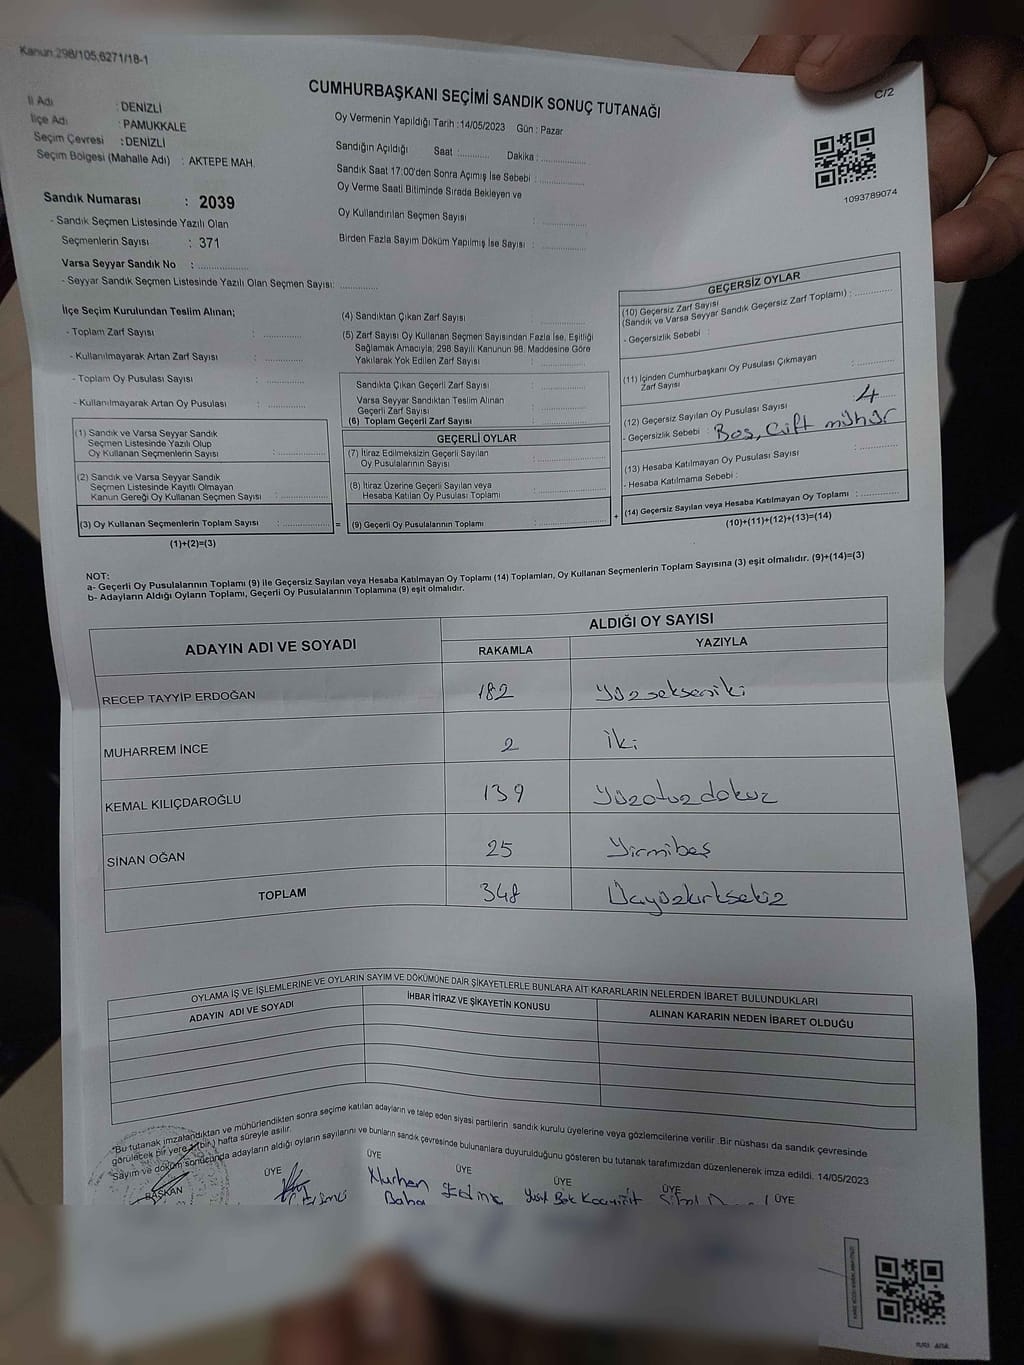 Kanun:298/105,6271/18-1
C/2
CUMHURBAŞKANI SEÇİMİ SANDIK SONUÇ TUTANAĞI
İl Adı : DENİZLİ
İlçe Adı : PAMUKKALE
Seçim Çevresi : DENİZLİ
Seçim Bölgesi (Mahalle Adı) : AKTEPE MAH.
Sandık Numarası : 2039
- Sandık Seçmen Listesinde Yazılı Olan
Seçmenlerin Sayısı : 371
Varsa Seyyar Sandık No : ..............
- Seyyar Sandık Seçmen Listesinde Yazılı Olan Seçmen Sayısı: ............
Oy Vermenin Yapıldığı Tarih :14/05/2023 Gün : Pazar
Sandığın Açıldığı Saat :.......... Dakika :..............
Sandık Saat 17:00'den Sonra Açımış İse Sebebi : ..............
Oy Verme Saati Bitiminde Sırada Bekleyen ve
Oy Kullandırılan Seçmen Sayısı : ..............
Birden Fazla Sayım Döküm Yapılmış İse Sayısı : ..............
1093789074
İlçe Seçim Kurulundan Teslim Alınan;
- Toplam Zarf Sayısı : ............
- Kullanılmayarak Artan Zarf Sayısı : ............
- Toplam Oy Pusulası Sayısı : ............
- Kullanılmayarak Artan Oy Pusulası : ............
(1) Sandık ve Varsa Seyyar Sandık
Seçmen Listesinde Yazılı Olup
Oy Kullanan Seçmenlerin Sayısı : ..............
(2) Sandık ve Varsa Seyyar Sandık
Seçmen Listesinde Kayıtlı Olmayan
Kanun Gereği Oy Kullanan Seçmen Sayısı : ..............
(3) Oy Kullanan Seçmenlerin Toplam Sayısı : .............. =
(1)+(2)=(3)
(4) Sandıktan Çıkan Zarf Sayısı : ............
(5) Zarf Sayısı Oy Kullanan Seçmen Sayısından Fazla İse, Eşitliği
Sağlamak Amacıyla; 298 Sayılı Kanunun 98. Maddesine Göre
Yakılarak Yok Edilen Zarf Sayısı : ............
Sandıkta Çıkan Geçerli Zarf Sayısı : ............
Varsa Seyyar Sandıktan Teslim Alınan
Geçerli Zarf Sayısı : ............
(6) Toplam Geçerli Zarf Sayısı : ............
GEÇERLİ OYLAR
(7) İtiraz Edilmeksizin Geçerli Sayılan
Oy Pusulalarının Sayısı : ..............
(8) İtiraz Üzerine Geçerli Sayılan veya
Hesaba Katılan Oy Pusulası Toplamı : ..............
(9) Geçerli Oy Pusulalarının Toplamı : .............. +
GEÇERSİZ OYLAR
(10) Geçersiz Zarf Sayısı
(Sandık ve Varsa Seyyar Sandık Geçersiz Zarf Toplamı) : ............
- Geçersizlik Sebebi :
(11) İçinden Cumhurbaşkanı Oy Pusulası Çıkmayan
Zarf Sayısı : ............
(12) Geçersiz Sayılan Oy Pusulası Sayısı : 4
- Geçersizlik Sebebi : Boş, Çift mühür
(13) Hesaba Katılmayan Oy Pusulası Sayısı : ............
- Hesaba Katılmama Sebebi :
(14) Geçersiz Sayılan veya Hesaba Katılmayan Oy Toplamı : ............
(10)+(11)+(12)+(13)=(14)
NOT:
a- Geçerli Oy Pusulalarının Toplamı (9) ile Geçersiz Sayılan veya Hesaba Katılmayan Oy Toplamı (14) Toplamları, Oy Kullanan Seçmenlerin Toplam Sayısına (3) eşit olmalıdır. (9)+(14)=(3)
b- Adayların Aldığı Oyların Toplamı, Geçerli Oy Pusulalarının Toplamına (9) eşit olmalıdır.
ADAYIN ADI VE SOYADI
ALDIĞI OY SAYISI
RAKAMLA YAZIYLA
RECEP TAYYİP ERDOĞAN 182 yüzsekseniki
MUHARREM İNCE 2 iki
KEMAL KILIÇDAROĞLU 139 yüzotuzdokuz
SİNAN OĞAN 25 Yirmibeş
TOPLAM 348 Üçyüzkırksekiz
OYLAMA İŞ VE İŞLEMLERİNE VE OYLARIN SAYIM VE DÖKÜMÜNE DAİR ŞİKAYETLERLE BUNLARA AİT KARARLARIN NELERDEN İBARET BULUNDUKLARI
ADAYIN ADI VE SOYADI İHBAR İTİRAZ VE ŞİKAYETİN KONUSU ALINAN KARARIN NEDEN İBARET OLDUĞU
"Bu tutanak imzalandıktan ve mühürlendikten sonra seçime katılan adayların ve talep eden siyasi partilerin sandık kurulu üyelerine veya gözlemcilerine verilir. Bir nüshası da sandık çevresinde
görülecek bir yere 1 (bir) hafta süreyle asılır.
Sayım ve döküm sonucunda adayların aldığı oyların sayılarını ve bunların sandık çevresinde bulunanlara duyurulduğunu gösteren bu tutanak tarafımızdan düzenlenerek imza edildi. 14/05/2023
BAŞKAN ÜYE ÜYE ÜYE ÜYE ÜYE ÜYE
Nurhan
Baha